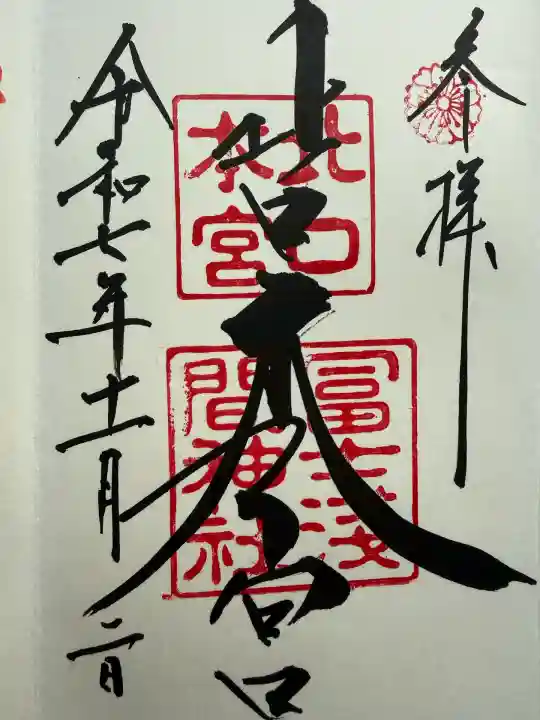 参拝
北口本宮
北口本宮
冨士浅間神社
令和七年十一月二日